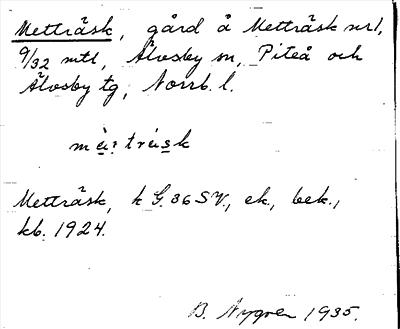 Metträsk, gård å Metträsk nr1,
9/32 mtl, Älvsby sn, Piteå och
Älvsby tg, Norrb. l.
mètträsk
Metträsk, k G. 36 SV., ek., bek.,
kb. 1924.
B. Nygren 1935.